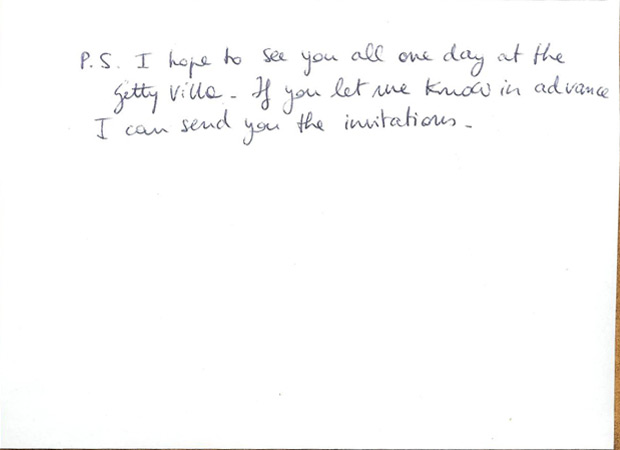 P.S. I hope to see you all one day at the
Getty Villa - If you let me know in advance
I can send you the invitations -